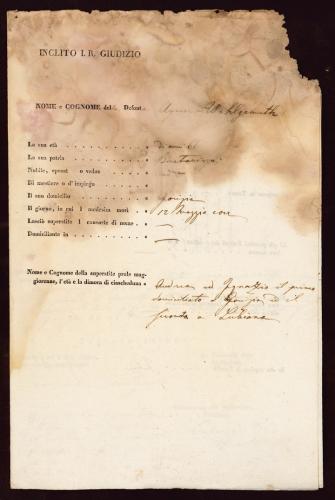 INCLITO I. R. GIUDIZIO
NOME e COGNOME del Defont
La sua età
La sua patria
Nubile, sposat o vedov
Di mestiere o d'impiego
Il suo domicilio Gorizia
Il giorno, in cui l medesim morì 12 Maggio
Lasciò superstite l consorte di nome
Domiciliante in
Nome e Cognome della superstite prole mag-
giorenne, l'età e la dimora di ciascheduno Andrea ed Ignazio il primo
domiciliato a Gorizia ed il
a Lubiana